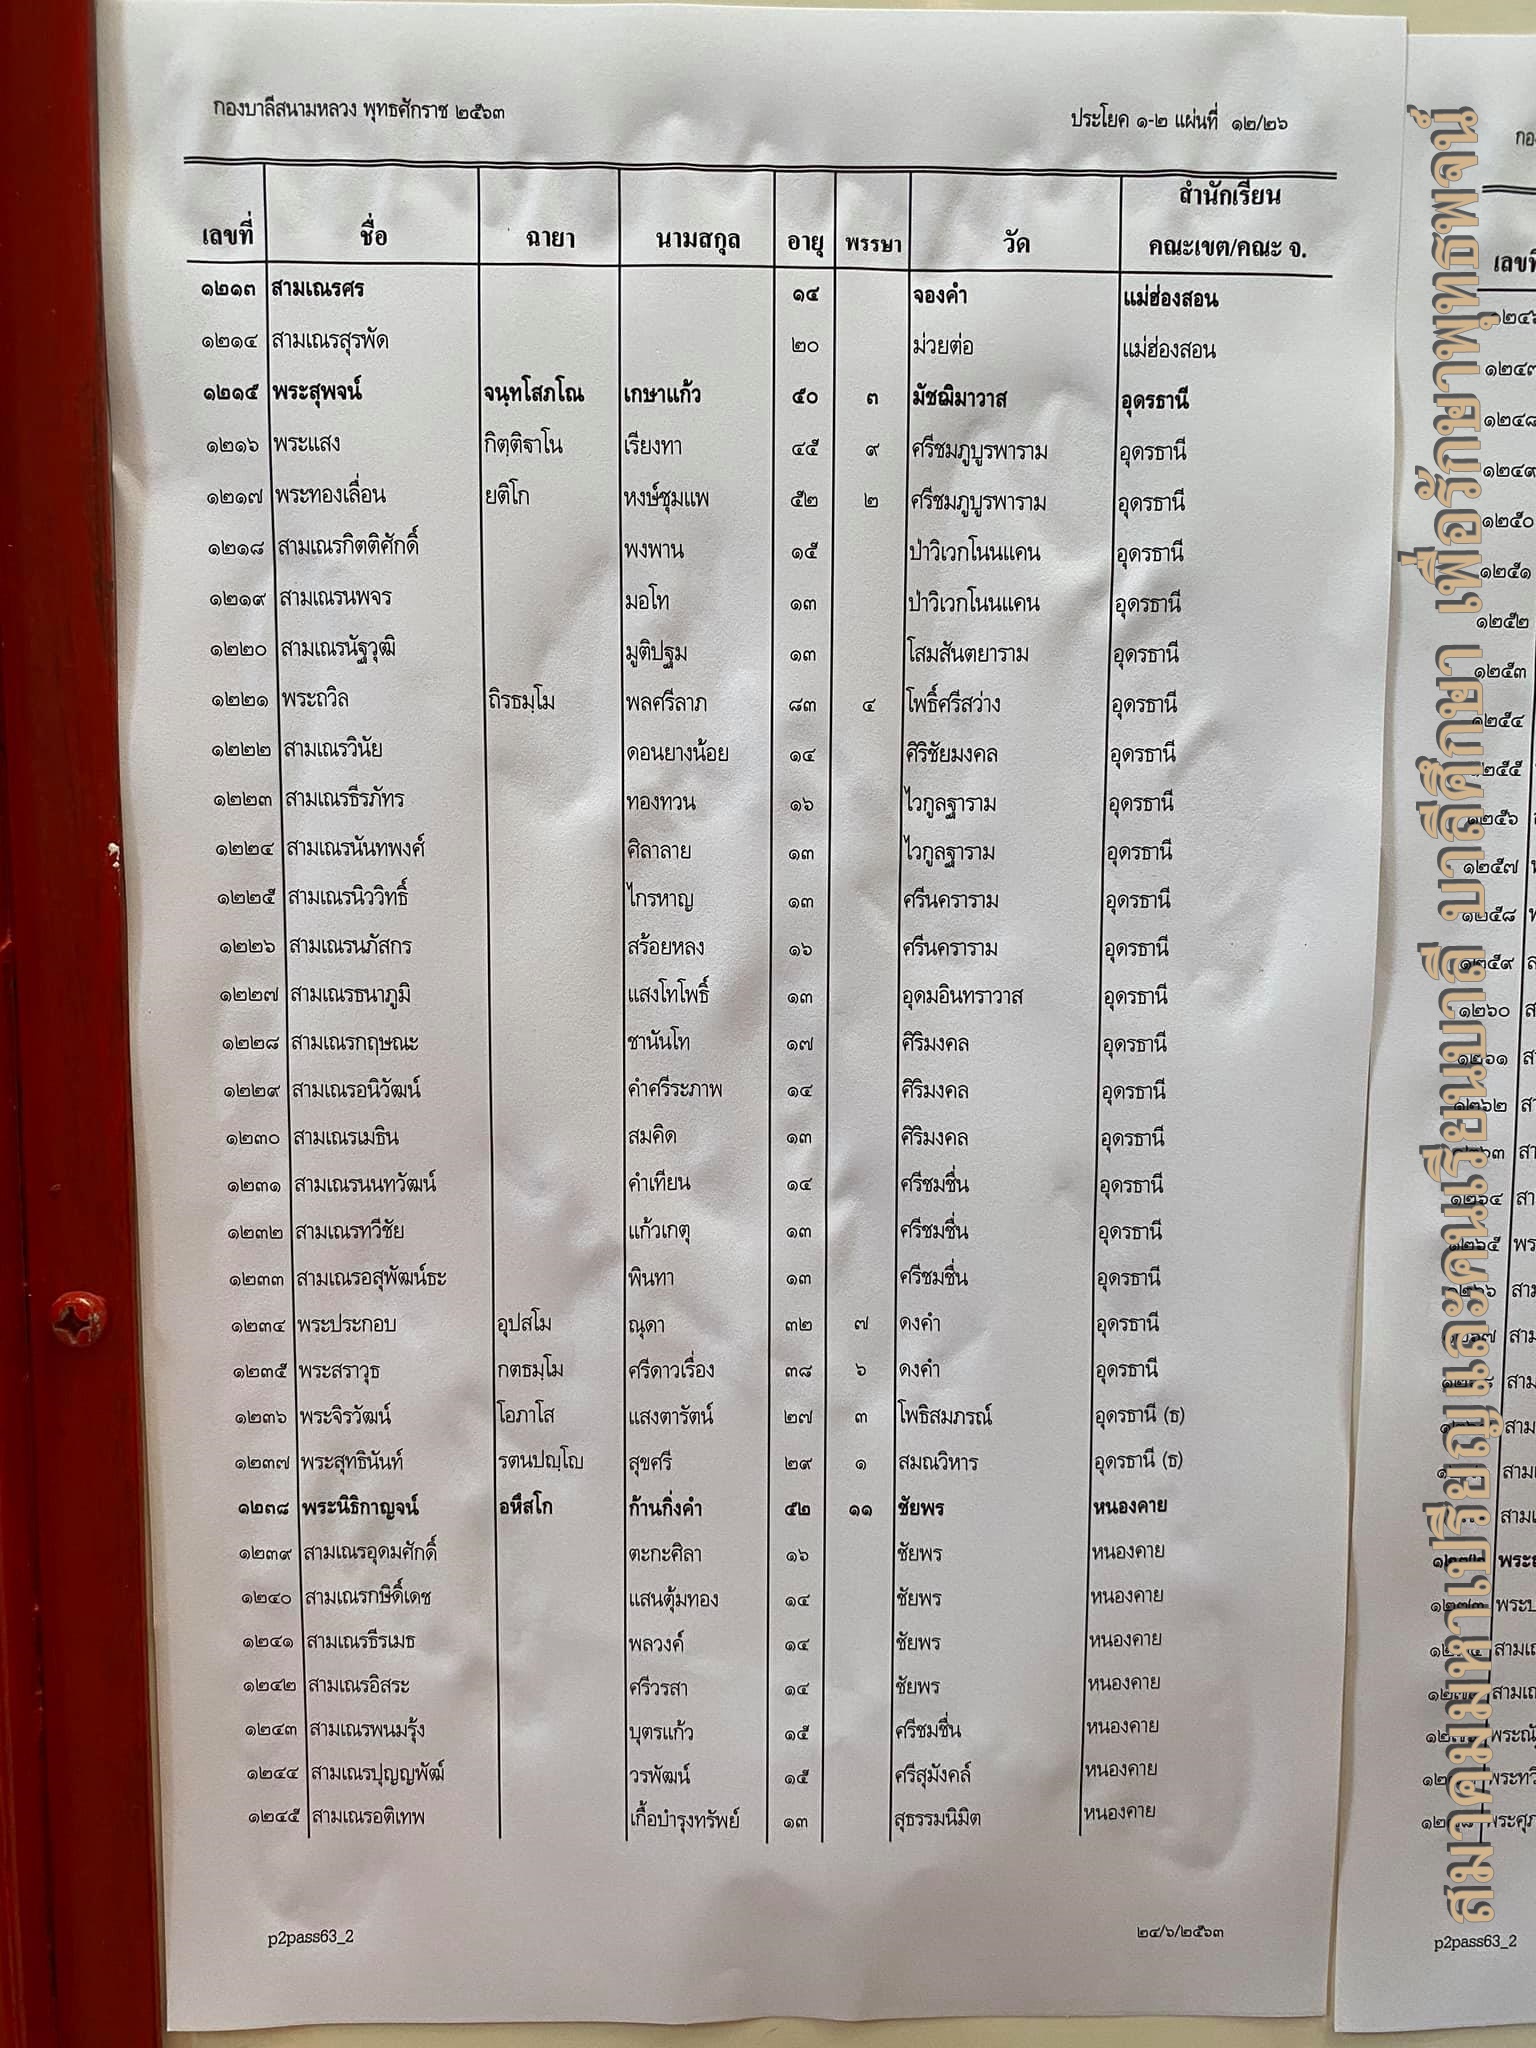 กองบาลีสนามหลวง พุทธศักราช ๒๕๖๓
ประโยค ๑-๒ แผ่นที่ ๑๒/๒๖
เลขที่ ชื่อ ฉายา นามสกุล อายุ พรรษา วัด สำนักเรียน คณะเขต/คณะ จ.
๑๒๑๓ สามเณรศร ๑๔ จองคำ แม่ฮ่องสอน
๑๒๑๔ สามเณรสุรพัด ๒๐ ม่วยต่อ แม่ฮ่องสอน
๑๒๑๕ พระสุพจน์ จนฺทโสภโณ เกษาแก้ว ๕๐ ๓ มัชฌิมาวาส อุดรธานี
๑๒๑๖ พระแสง กิตฺติจาโน เรียงทา ๔๕ ๙ ศรีชมภูบูรพาราม อุดรธานี
๑๒๑๗ พระทองเลื่อน ยติโก หงษ์ชุมแพ ๕๒ ๒ ศรีชมภูบูรพาราม อุดรธานี
๑๒๑๘ สามเณรกิตติศักดิ์ พงพาน ๑๕ ป่าวิเวกโนนแคน อุดรธานี
๑๒๑๙ สามเณรนพจร มอโท ๑๓ ป่าวิเวกโนนแคน อุดรธานี
๑๒๒๐ สามเณรนัฐวุฒิ มูติปฐม ๑๓ โสมสันตยาราม อุดรธานี
๑๒๒๑ พระถวิล ถิรธมฺโม พลศรีลาภ ๘๓ ๔ โพธิ์ศรีสว่าง อุดรธานี
๑๒๒๒ สามเณรวินัย ดอนยางน้อย ๑๔ ศิริชัยมงคล อุดรธานี
๑๒๒๓ สามเณรธีรภัทร ทองทวน ๑๖ ไวกูลฐาราม อุดรธานี
๑๒๒๔ สามเณรนันทพงศ์ ศิลาลาย ๑๓ ไวกูลฐาราม อุดรธานี
๑๒๒๕ สามเณรนิววิทธิ์ ไกรหาญ ๑๓ ศรีนคราราม อุดรธานี
๑๒๒๖ สามเณรนภัสกร สร้อยหลง ๑๖ ศรีนคราราม อุดรธานี
๑๒๒๗ สามเณรธนาภูมิ แสงโทโพธิ์ ๑๓ อุดมอินทราวาส อุดรธานี
๑๒๒๘ สามเณรกฤษณะ ชานันโท ๑๗ ศิริมงคล อุดรธานี
๑๒๒๙ สามเณรอนิวัฒน์ คำศรีระภาพ ๑๔ ศิริมงคล อุดรธานี
๑๒๓๐ สามเณรเมธิน สมคิด ๑๓ ศิริมงคล อุดรธานี
๑๒๓๑ สามเณรนนทวัฒน์ คำเทียน ๑๔ ศรีชมชื่น อุดรธานี
๑๒๓๒ สามเณรทวีชัย แก้วเกตุ ๑๓ ศรีชมชื่น อุดรธานี
๑๒๓๓ สามเณรอสุพัฒน์ธะ พินทา ๑๓ ศรีชมชื่น อุดรธานี
๑๒๓๔ พระประกอบ อุปสโม ณุดา ๓๒ ๗ ดงคำ อุดรธานี
๑๒๓๕ พระสราวุธ กตธมฺโม ศรีดาวเรื่อง ๓๘ ๖ ดงคำ อุดรธานี
๑๒๓๖ พระจิรวัฒน์ โอภาโส แสงตารัตน์ ๒๗ ๓ โพธิสมภรณ์ อุดรธานี (ธ)
๑๒๓๗ พระสุทธินันท์ รตนปญฺโญ สุขศรี ๒๙ ๑ สมณวิหาร อุดรธานี (ธ)
๑๒๓๘ พระนิธิกาญจน์ อหึสโก ก้านกิ่งคำ ๕๒ ๑๑ ชัยพร หนองคาย
๑๒๓๙ สามเณรอุดมศักดิ์ ตะกะศิลา ๑๖ ชัยพร หนองคาย
๑๒๔๐ สามเณรกษิดิ์เดช แสนตุ้มทอง ๑๔ ชัยพร หนองคาย
๑๒๔๑ สามเณรธีรเมธ พลวงค์ ๑๔ ชัยพร หนองคาย
๑๒๔๒ สามเณรอิสระ ศรีวรสา ๑๔ ชัยพร หนองคาย
๑๒๔๓ สามเณรพนมรุ้ง บุตรแก้ว ๑๕ ศรีชมชื่น หนองคาย
๑๒๔๔ สามเณรปุญญพัฒ์ วรพัฒน์ ๑๕ ศรีสุมังคล์ หนองคาย
๑๒๔๕ สามเณรอติเทพ เกื้อบำรุงทรัพย์ ๑๓ สุธรรมนิมิต หนองคาย
p2pass63_2
๒๔/๖/๒๕๖๓
เลขที่
๑๒๔๘
๑๒๔๙
๑๒๕๐
๑๒๕๑
๑๒๕๒
๑๒๕๓
๑๒๕๔
๑๒๕๕
๑๒๕๖
๑๒๕๗
๑๒๕๘
๑๒๕๙
๑๒๖๐
๑๒๖๑
๑๒๖๒
p2pass63_2
สมาคมมหาเปรียญและคนเรียนบาลี บาลีศึกษา เพื่อรักษาพุทธพจน์